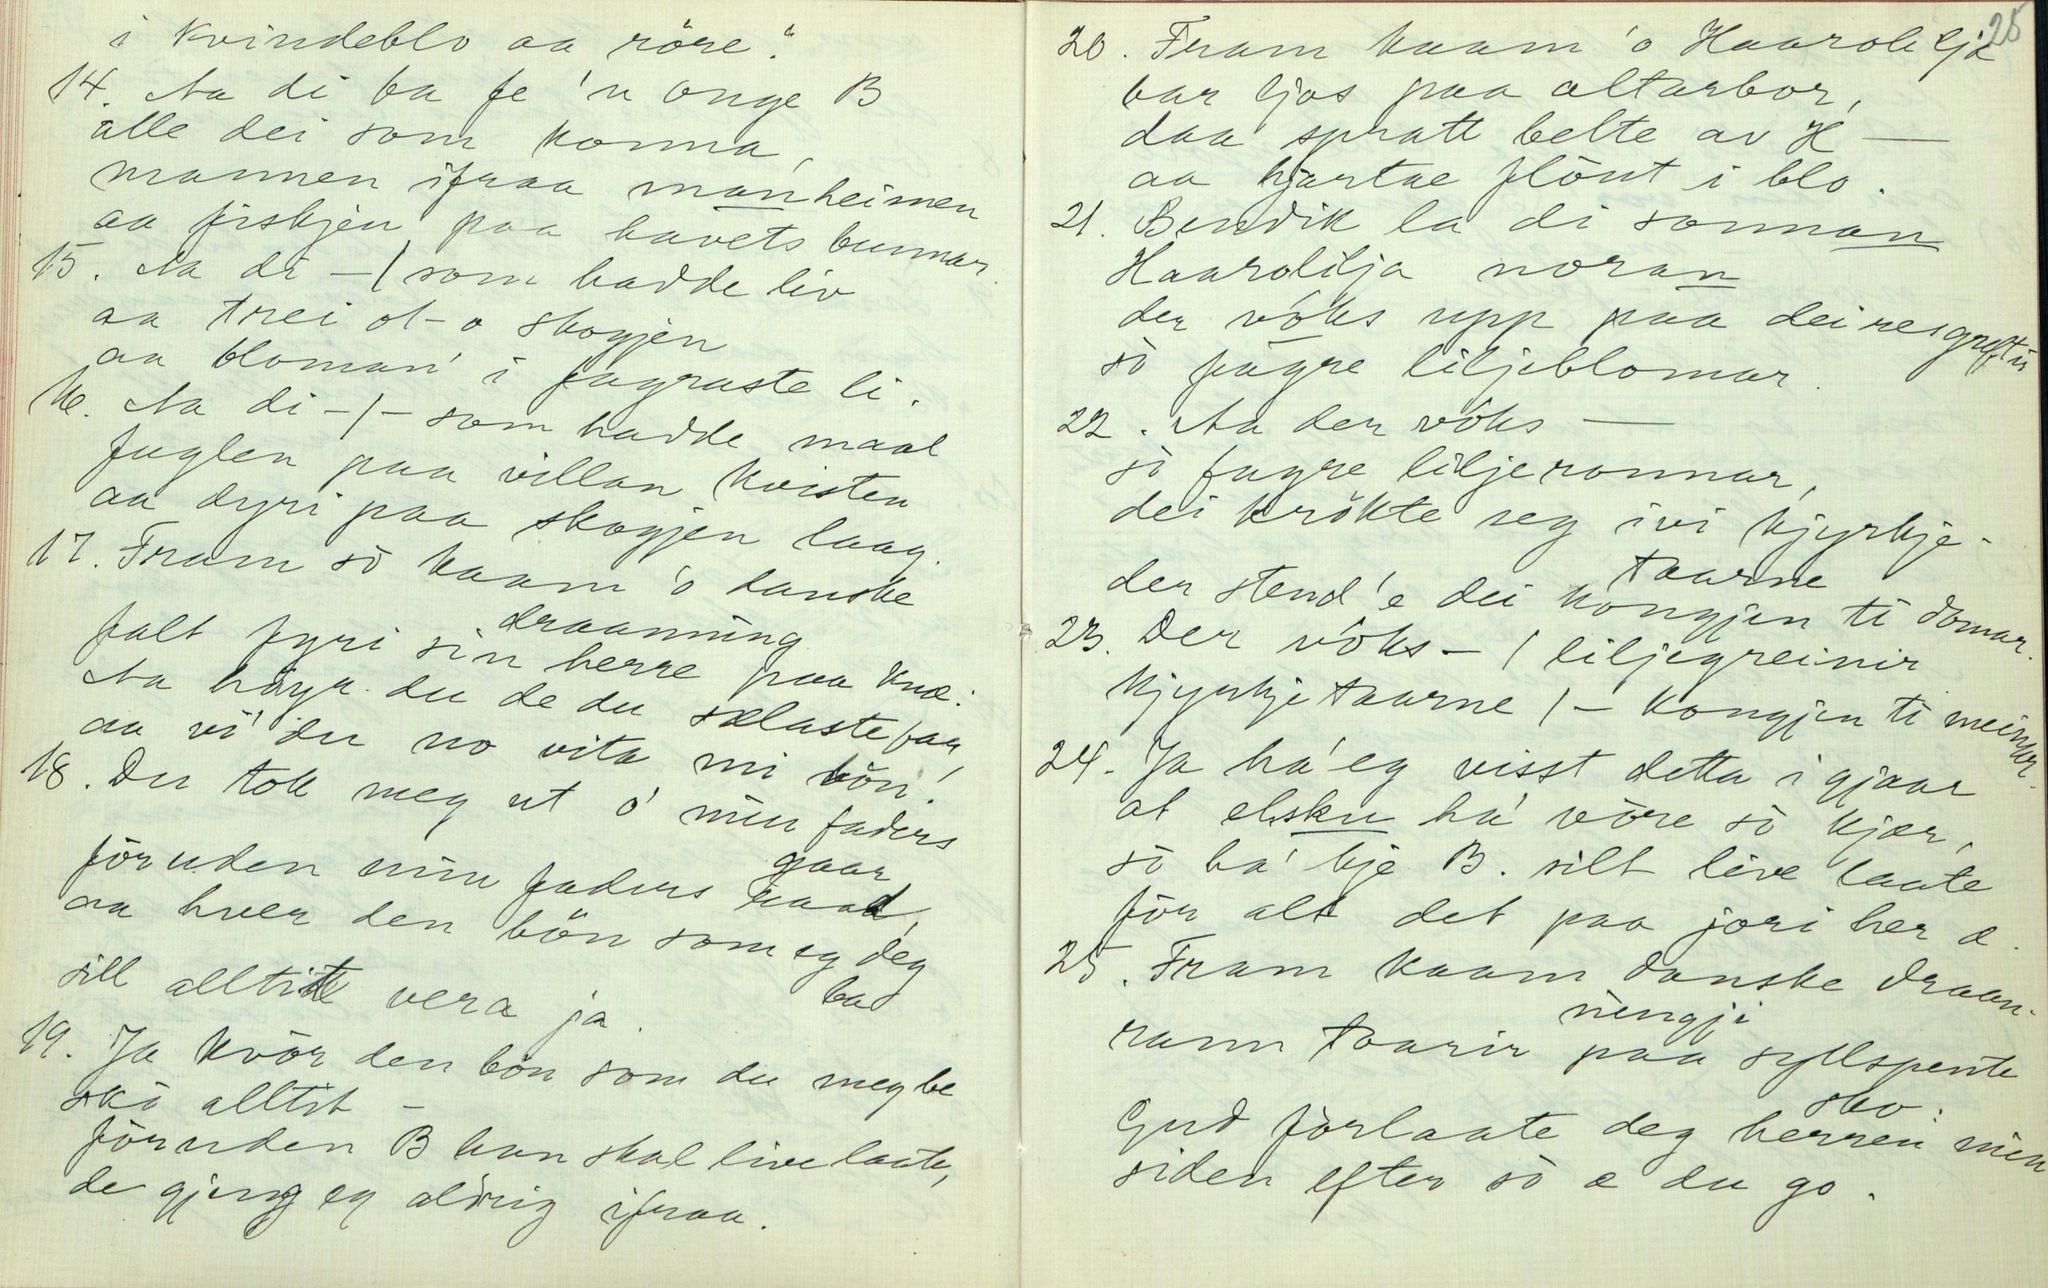 i kvindeblo aa röre".
14. Aa di ba fe 'n onge B
alle dei som konna,
mannen ifraa manheimen
aa fiskjen paa havets bunnar.
15. Aa di -/ som hadde liv
aa trei ot-o skogjen
aa bloman' i fagraste li.
16. Aa di -/- som hadde maal
fuglen paa villan kvisten
aa dyri paa skogjen laag.
17. Fram sò kaam 'o danske
draanning
falt fyri sin herre paa kne:
Aa höyr du de du sælaste faa,
aa vi' du no vita mi bön!
18. Du tok meg ut o' min faders
gaar
föruden min faders raad,
aa hver den bön som eg deg
bad
sill alltit vera ja.
19. Ja kvör den bön som du meg be
skò alltit –
föruden B han skal live laate,
de gjeng eg aldrig ifraa.
25
20. Fram kaam 'o Haarolilja
bar ljos paa altarbor,
daa spratt belte av H —
aa hjartae flöut i blo.
21. Bendik la di sonnan
Haarolilja noran
der vöks upp paa deires grefti
sò fagre liljeblomar.
22. Aa der vöks —
sò fagre liljeronnar,
dei krökte seg ivi kjyrkje-
taarne
der stend 'e dei kongjen ti domar.
23. Der vöks – / liljegreinir
kjyrkjetaarne / – kongjen ti meinar.
24. Ja há eg visst detta i gjaar
at elsku há vöre sò kjær,
sò há kje B. silt live laate
för alt det paa jori her æ.
25. Fram kaam danske draan-
ningji
rann taarir paa syllspente
sko.
Gud förlaate deg herren min
siden efter sò æ du go.